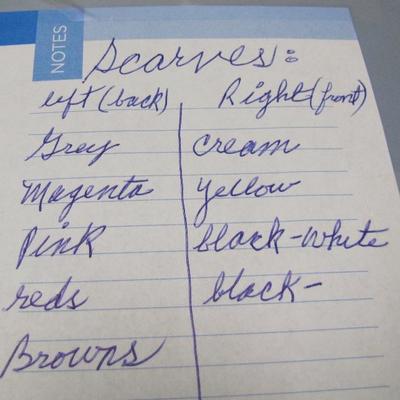 NOTES
Scarves:
left (back) Right (front)
Grey cream
Magenta yellow
Pink black-white
reds black-
Browns